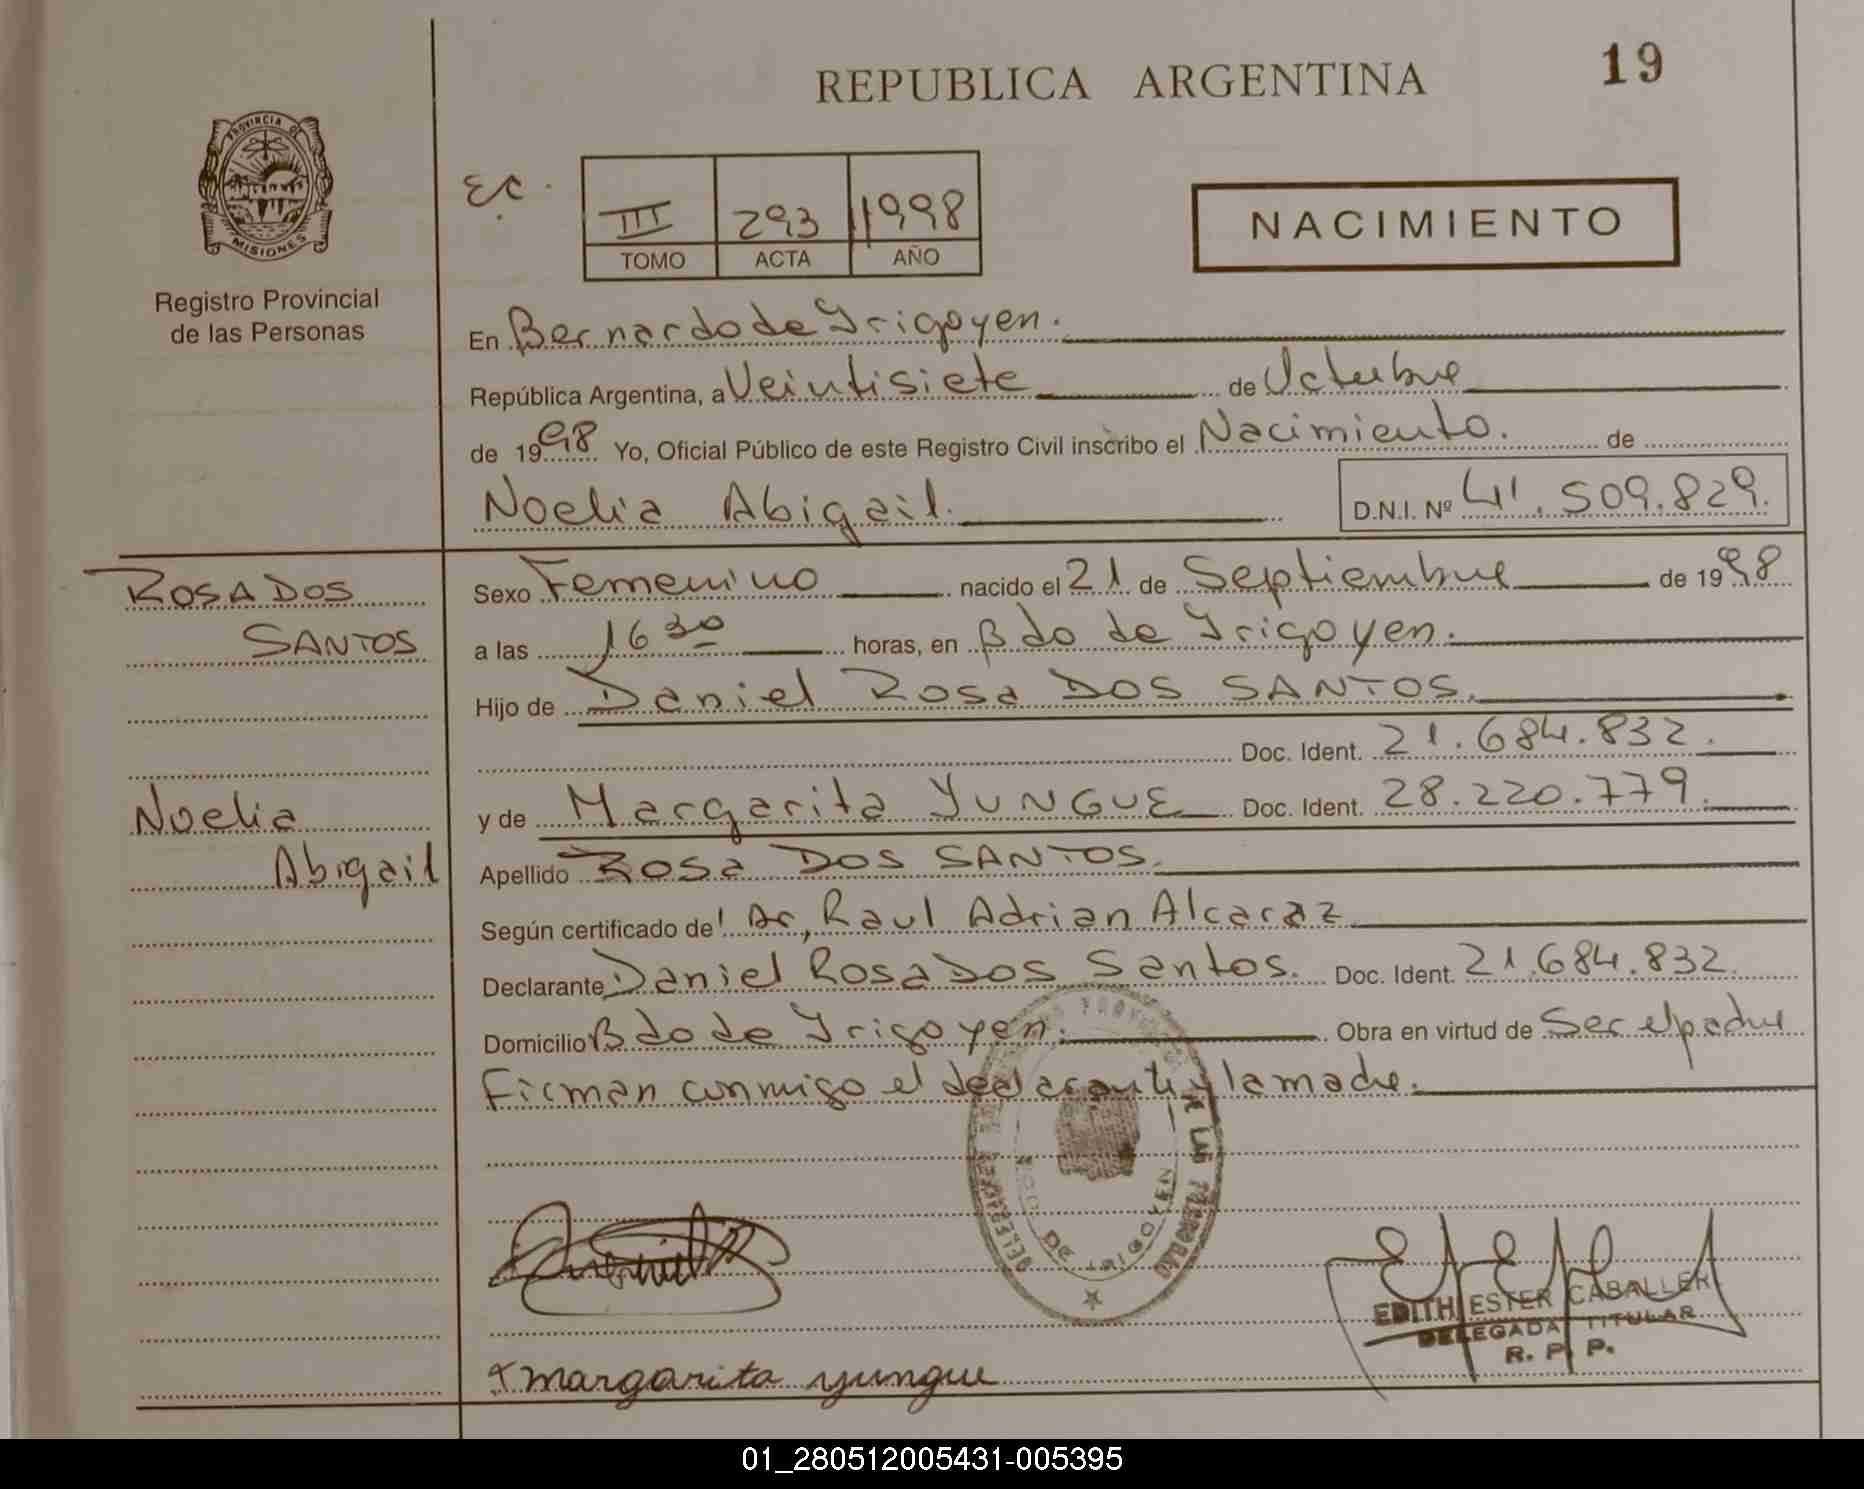 REPUBLICA ARGENTINA
19
PROVINCIA DE
MISIONES
Registro Provincial
de las Personas
III 293 1998
TOMO ACTA AÑO
NACIMIENTO
En Bernardo de Irigoyen.
República Argentina, a Veintisiete de Octubre
de 1998 Yo, Oficial Público de este Registro Civil inscribo el Nacimiento. de
Noelia Abigail. D.N.I. Nº 41.509.829.
ROSA DOS
SANTOS
Noelia
Abigail
Sexo Femenino nacido el 21 de Septiembre de 1998
a las 16 30 horas, en Bdo de Irigoyen.
Hijo de Daniel Rosa DOS SANTOS.
Doc. Ident. 21.684.832.
y de Margarita YUNGUE Doc. Ident. 28.220.779.
Apellido Rosa DOS SANTOS.
Según certificado de Dr, Raul Adrian Alcaraz
Declarante Daniel Rosa Dos Santos. Doc. Ident. 21.684.832
Domicilio Bdo de Irigoyen. Obra en virtud de Ser el padre
Firman conmigo el declarante y la madre.
DE IRIGOYEN
EDITH ESTER CABALLER
DELEGADA TITULAR
R. P. P.
margarita yungue
01_280512005431-005395